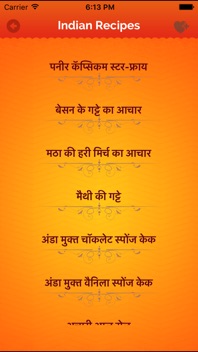 Carrier 6:13 PM
Indian Recipes
पनीर कॅप्सिकम स्टर-फ्राय
बेसन के गट्टे का आचार
मठा की हरी मिर्च का आचार
मैथी की गट्टे
अंडा मुक्त चॉकलेट स्पोंज केक
अंडा मुक्त वैनिला स्पोंज केक